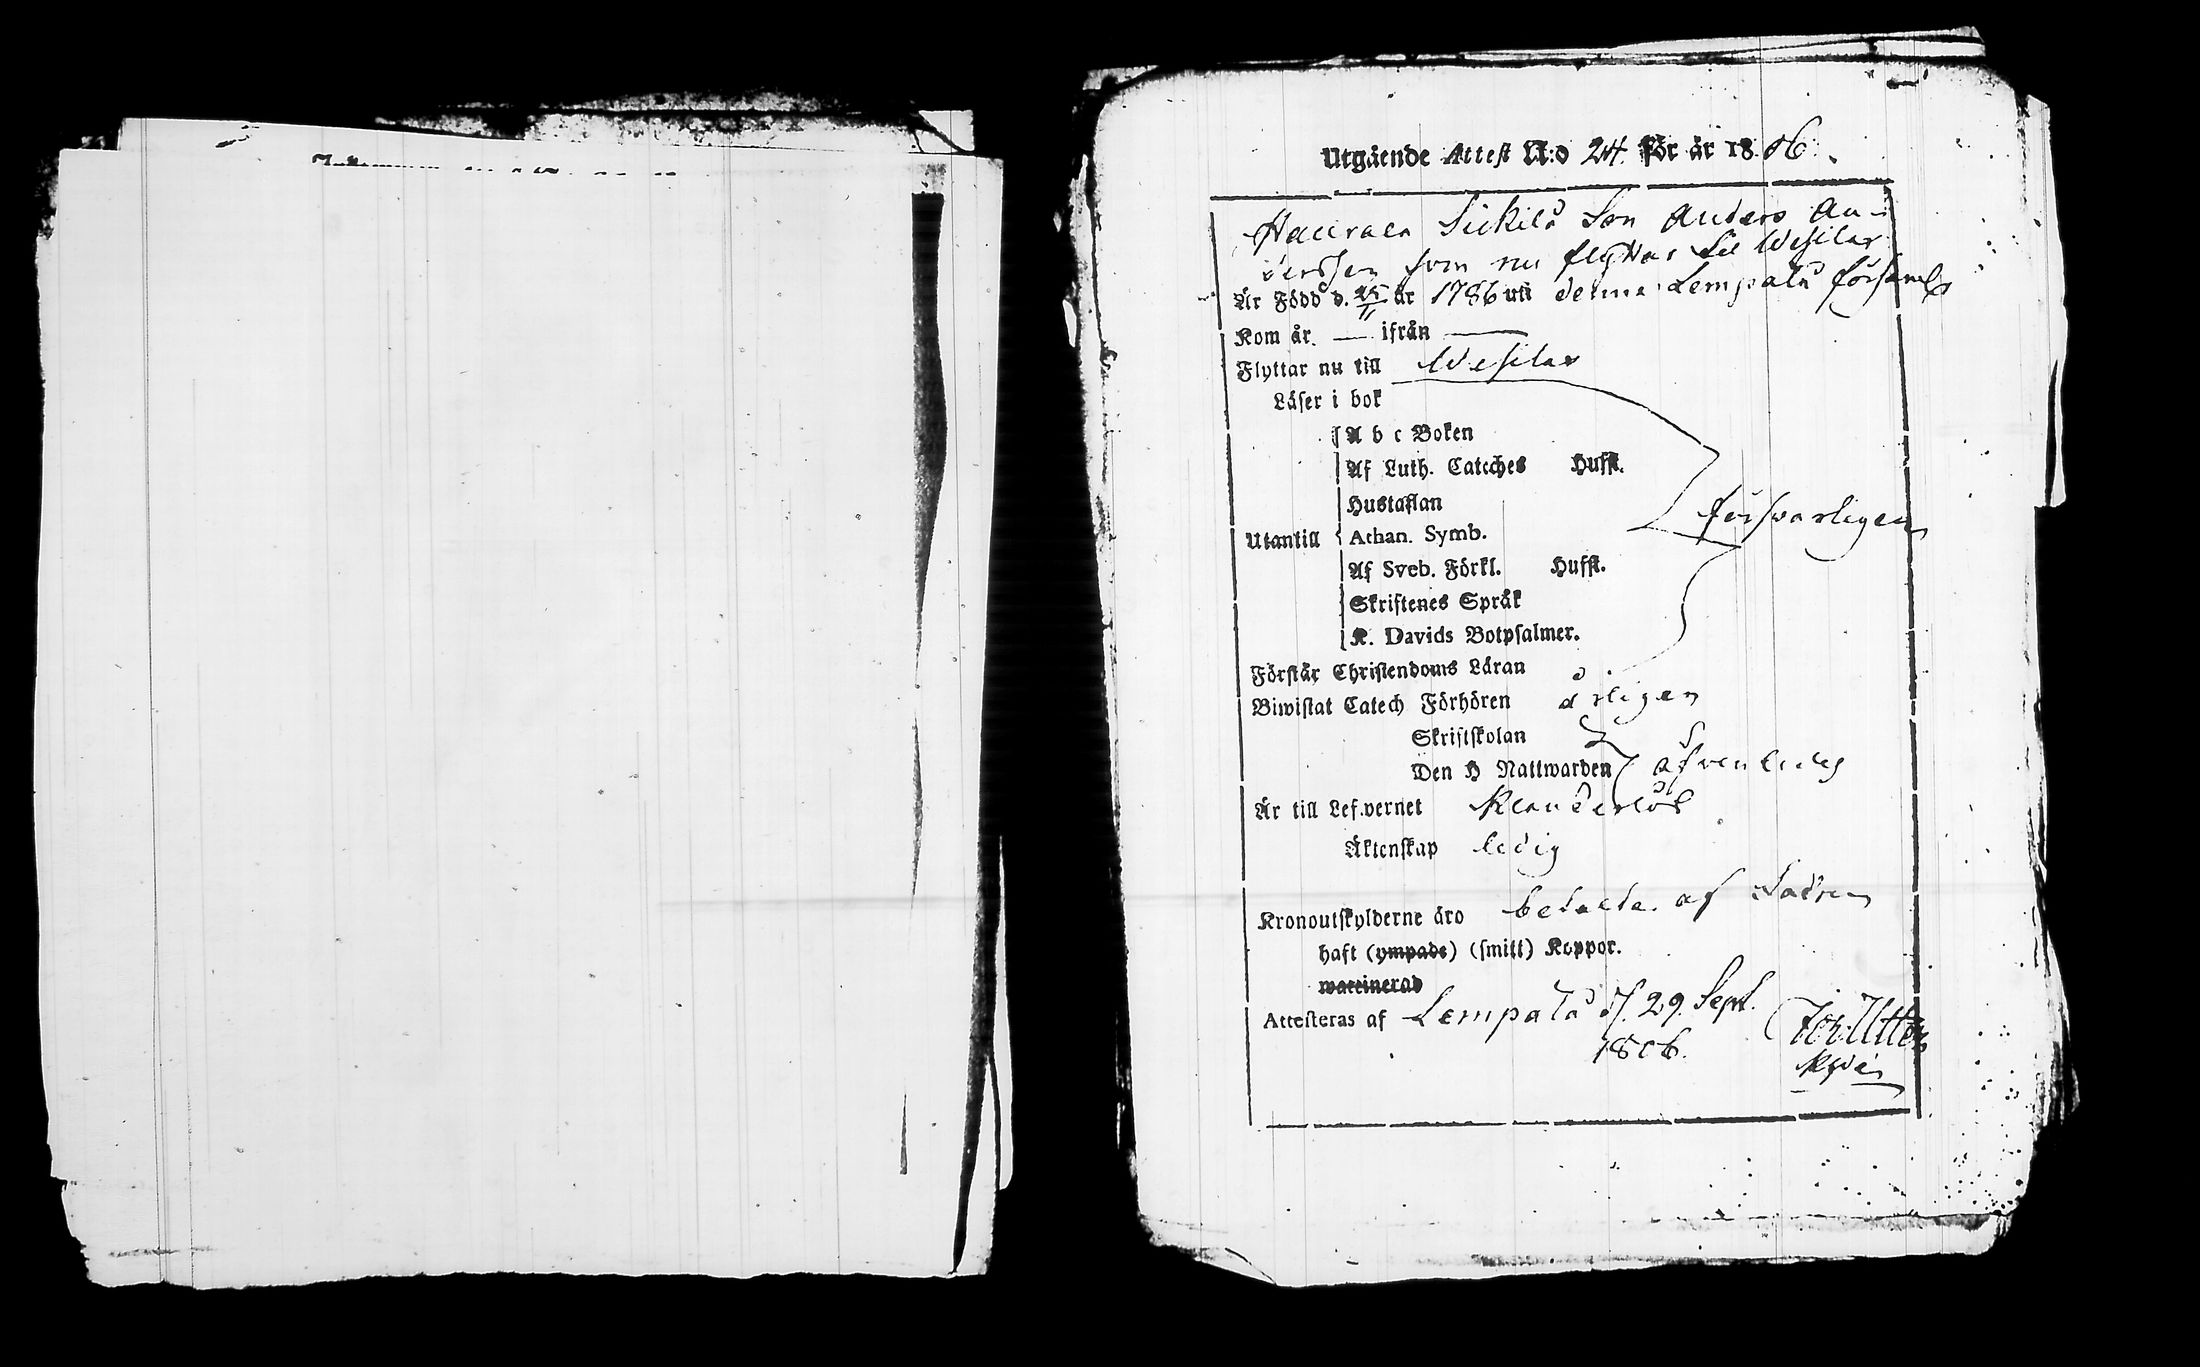 Utgående Attest N:o 24 för år 1806.
Sickilä Son Anders An-
dersson som nu flyttar til Wesilax
Är Född d. 25/11 år 1786 uti denna Lempälä församl
Kom år. — ifrån —
Flyttar nu till Wesilax
Läser i bok
A b c Boken
Af Luth. Cateches Hufst.
Hustaflan
försvarligen
Utantill Athan. Symb.
Af Sveb. Förkl. Hufst.
Skriftenes Språk
K. Davids Botpsalmer.
Förstår Christendoms Läran
Biwistat Catech Förhören årligen
Skriftskolan
Den H Nattwarden äfvenledes
Är till Lefvernet Klanderlös
Äktenskap ledig
Kronoutskylderne äro betalda af
haft (ympade) (smitt) Koppor.
waccinerad
Attesteras af Lempälä d. 29. Sept.
1806.